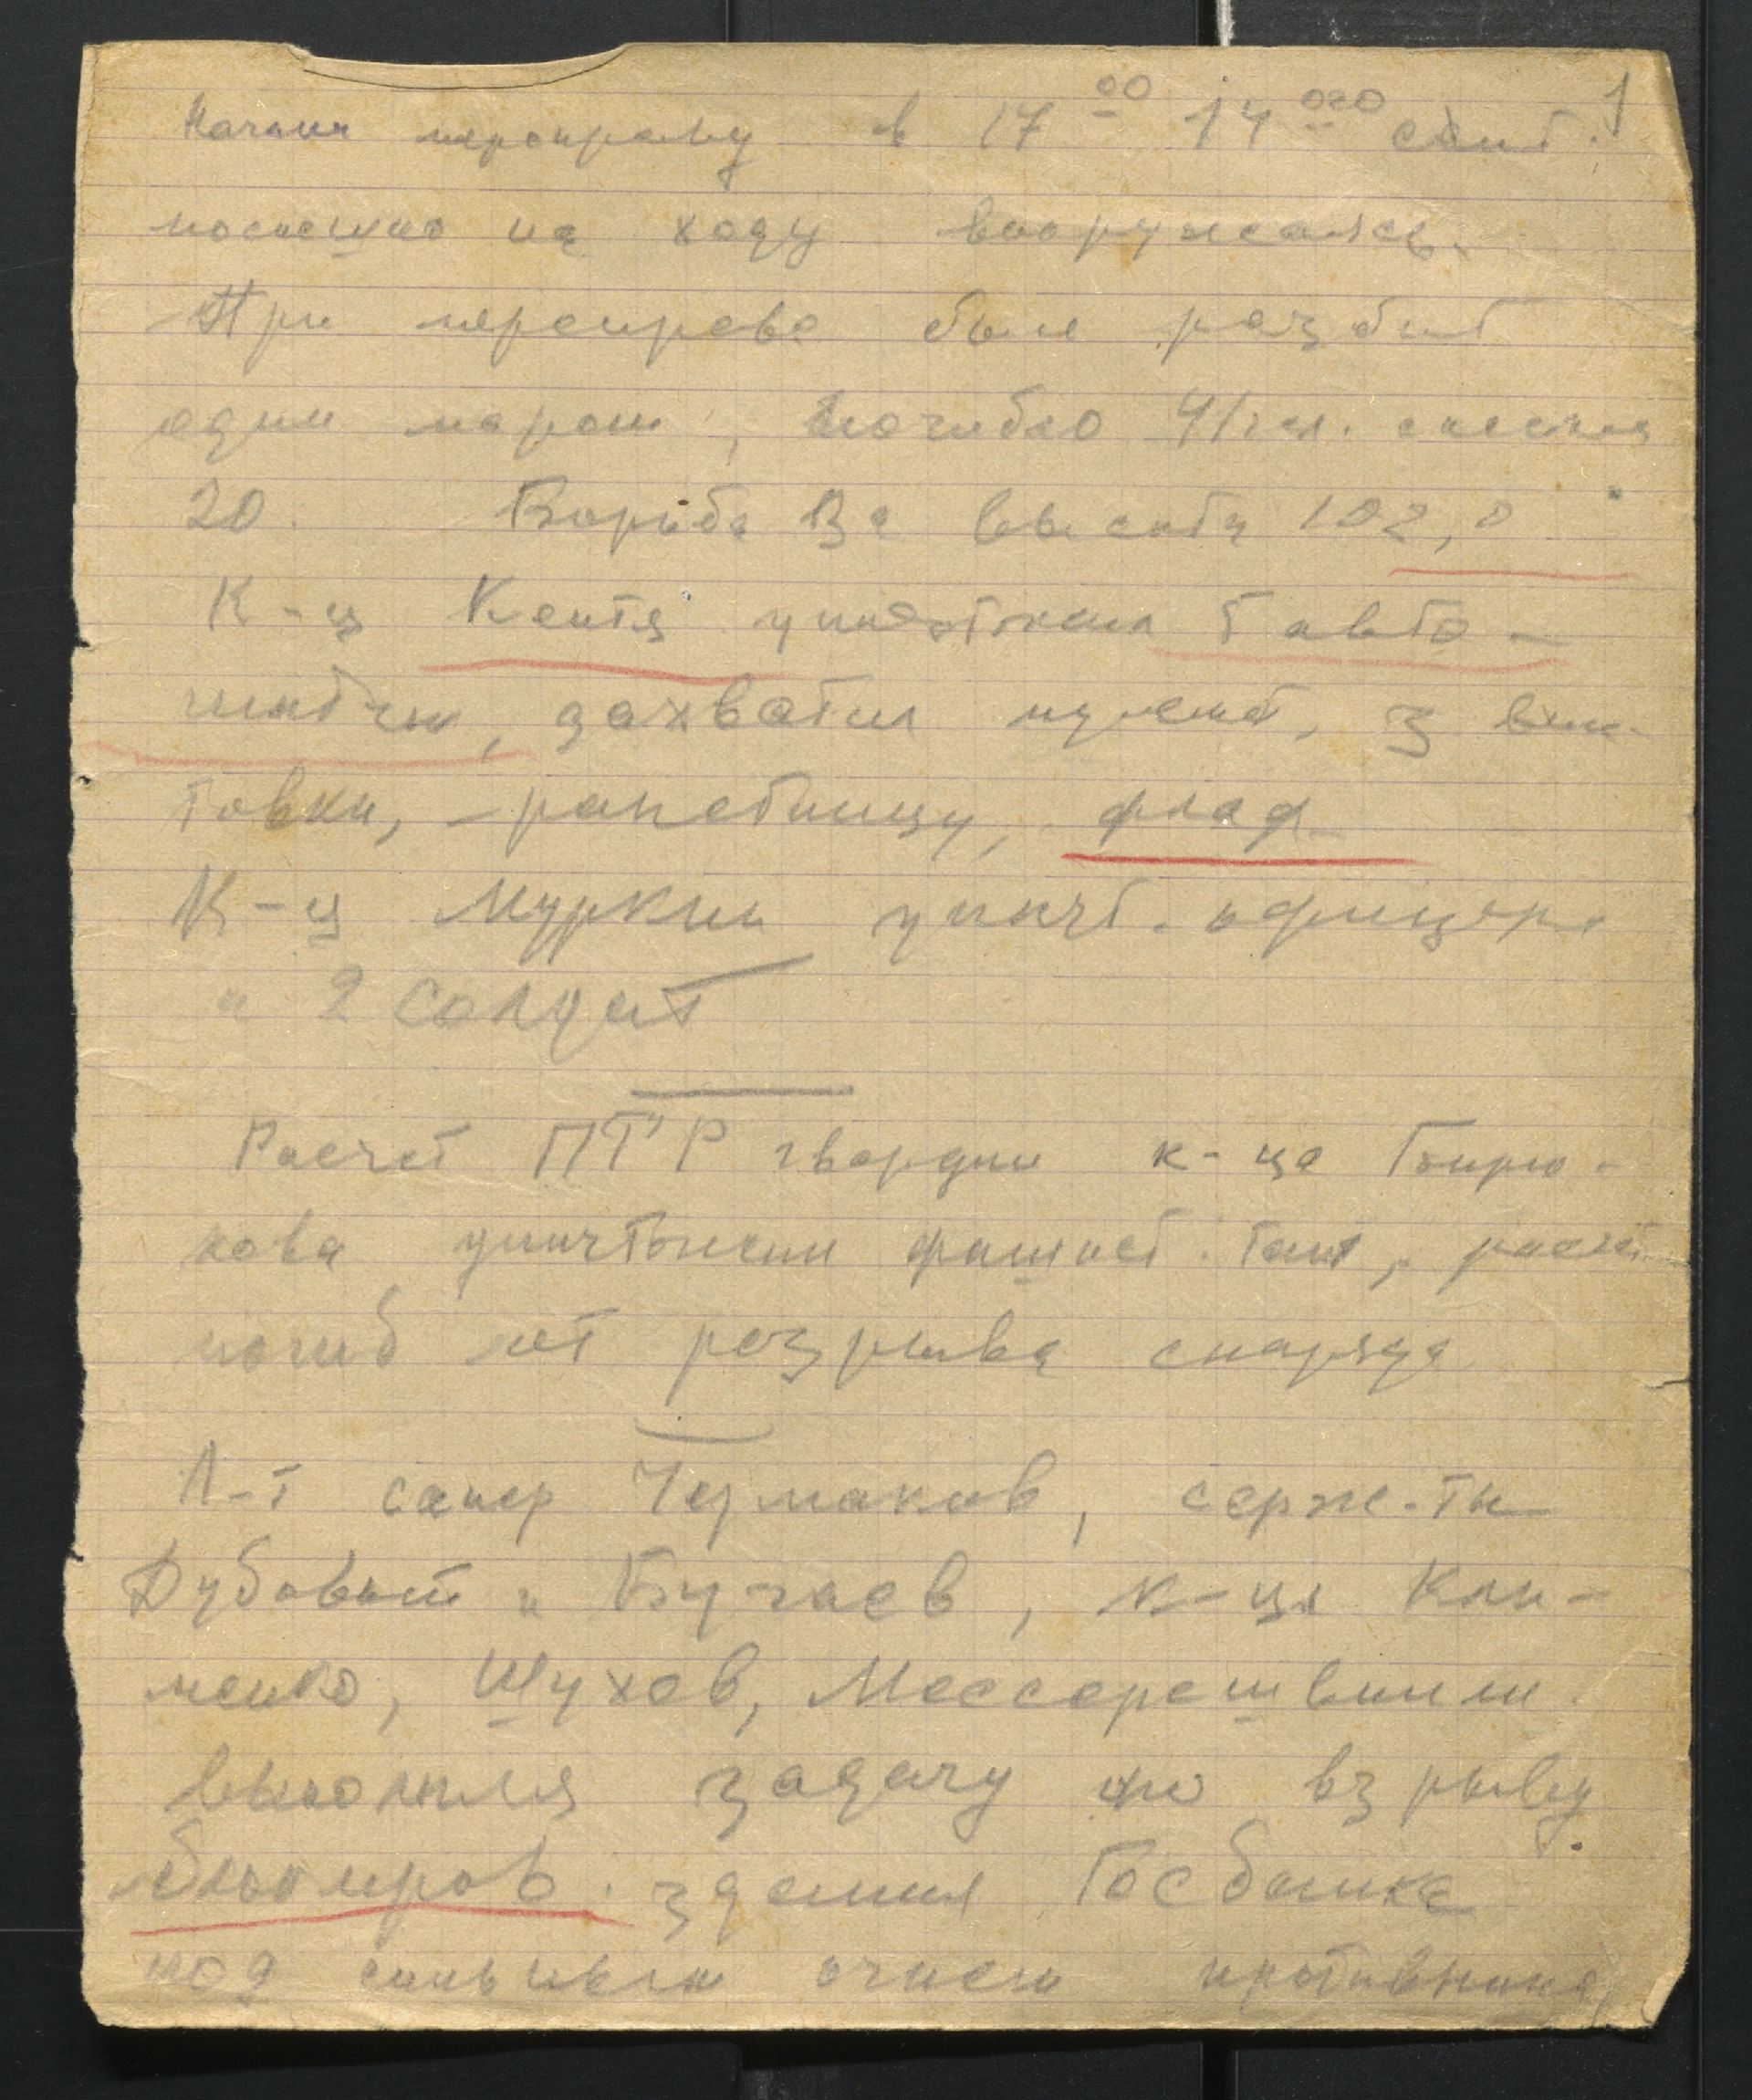 1
Начали переправу в 17 00 14 ого сент.
поспешно на ходу вооружаясь.
При переправе был разбит
один паром, погибло 41 чел. спаслись
20. Борьба за высоту 102,0
К-ц Кентя уничтожил 5 авто-
матчик, захватил пулемет, 3 вин-
товки, ракетницу, флаг.
К-ц Муркин уничт. офицера
и 2 солдат
Расчет ПТР гвардии к-ца Бирю-
кова уничтожил фашист. танк, расчет
погиб от разрыва снаряда
Л-т сапер Чермаков, серж-ты
Дубовый и Бугаев, к-цы Кли-
менко, Шухов, Мессерешвили.
выполняя задачу по взрыву
блокиров. здания Госбанка
под сильным огнем противника